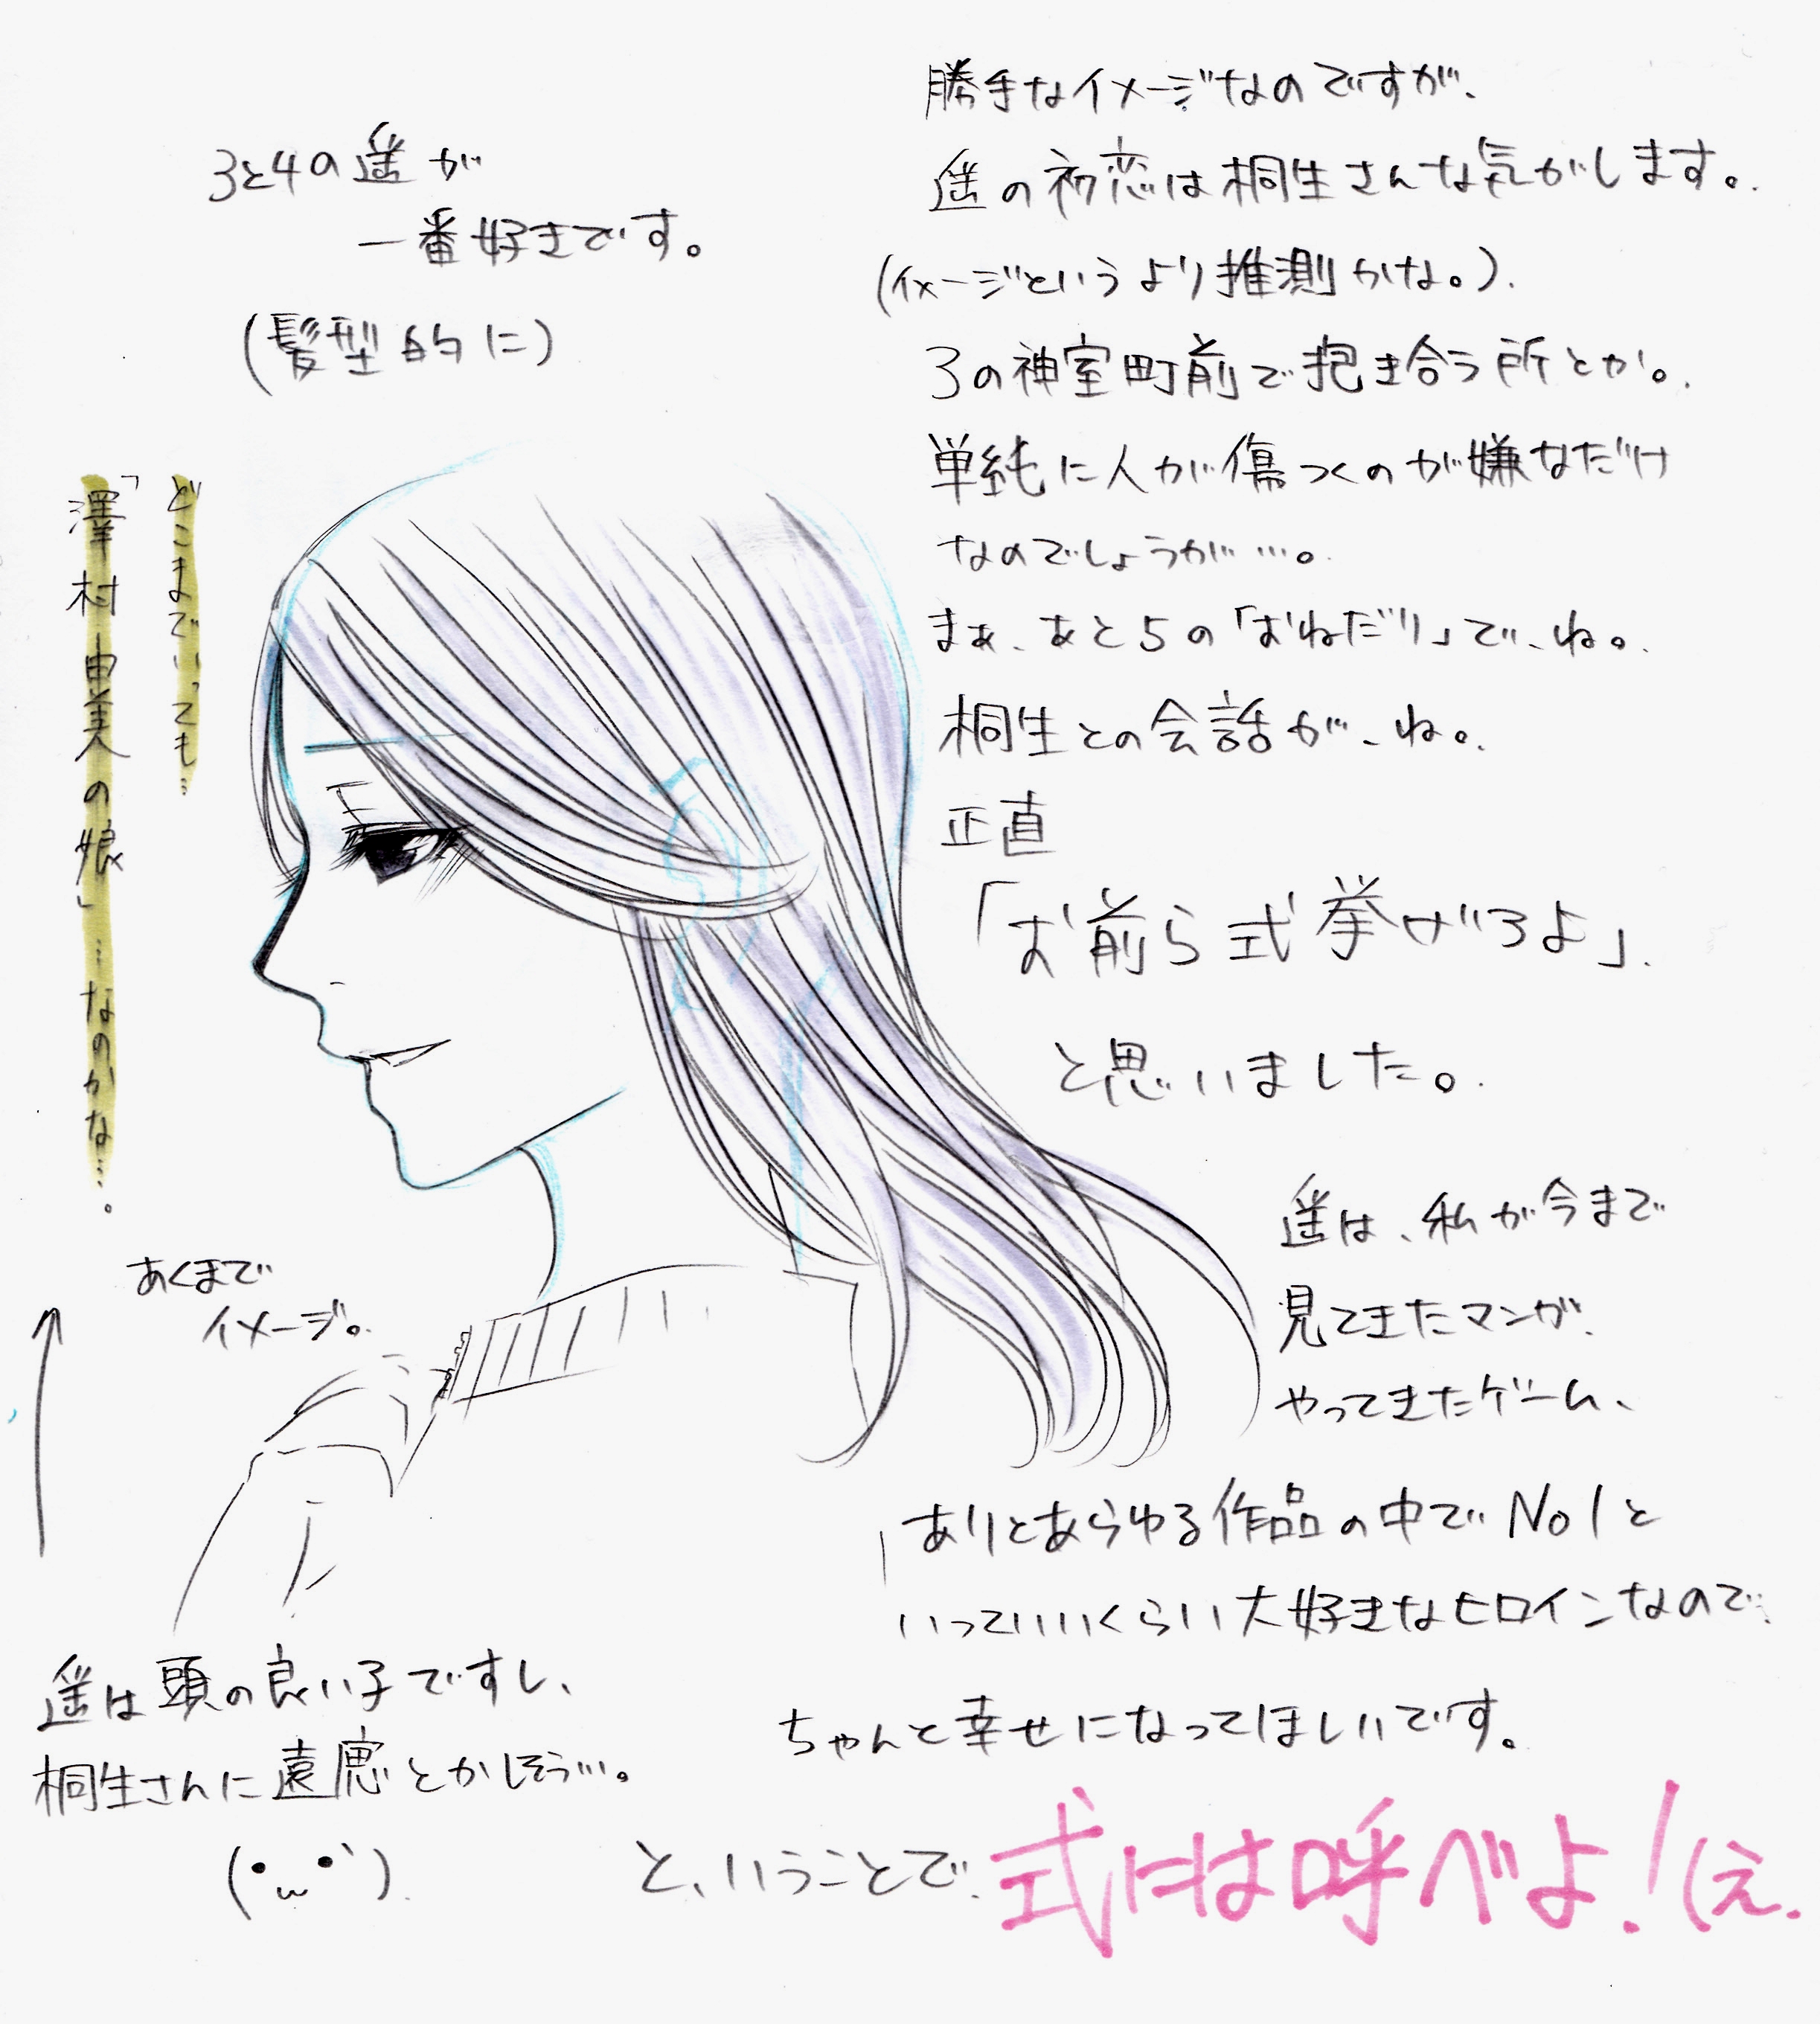 3と4の遥が
一番好きです。
(髪型的に)
勝手なイメージなのですが、
遥の初恋は桐生さんな気がします。
(イメージというより推測かな。)
3の神室町前で抱き合う所とか。
単純に人が傷つくのが嫌なだけ
なのでしょうが…。
まぁ、あと5の「おねだり」で、ね。
桐生との会話が、ね。
正直
「お前ら式挙げろよ」
と思いました。
どこまでいっても…
「澤村由美の娘」…なのかな…。
あくまで
イメージ。
遥は、私が今まで
見てきたマンガ、
やってきたゲーム、
ありとあらゆる作品の中でNo1と
いっていいくらい大好きなヒロインなので、
ちゃんと幸せになってほしいです。
遥は頭の良い子ですし、
桐生さんに遠慮とかしそう…。
(・ω・`)
と、いうことで、式には呼べよ!(え.